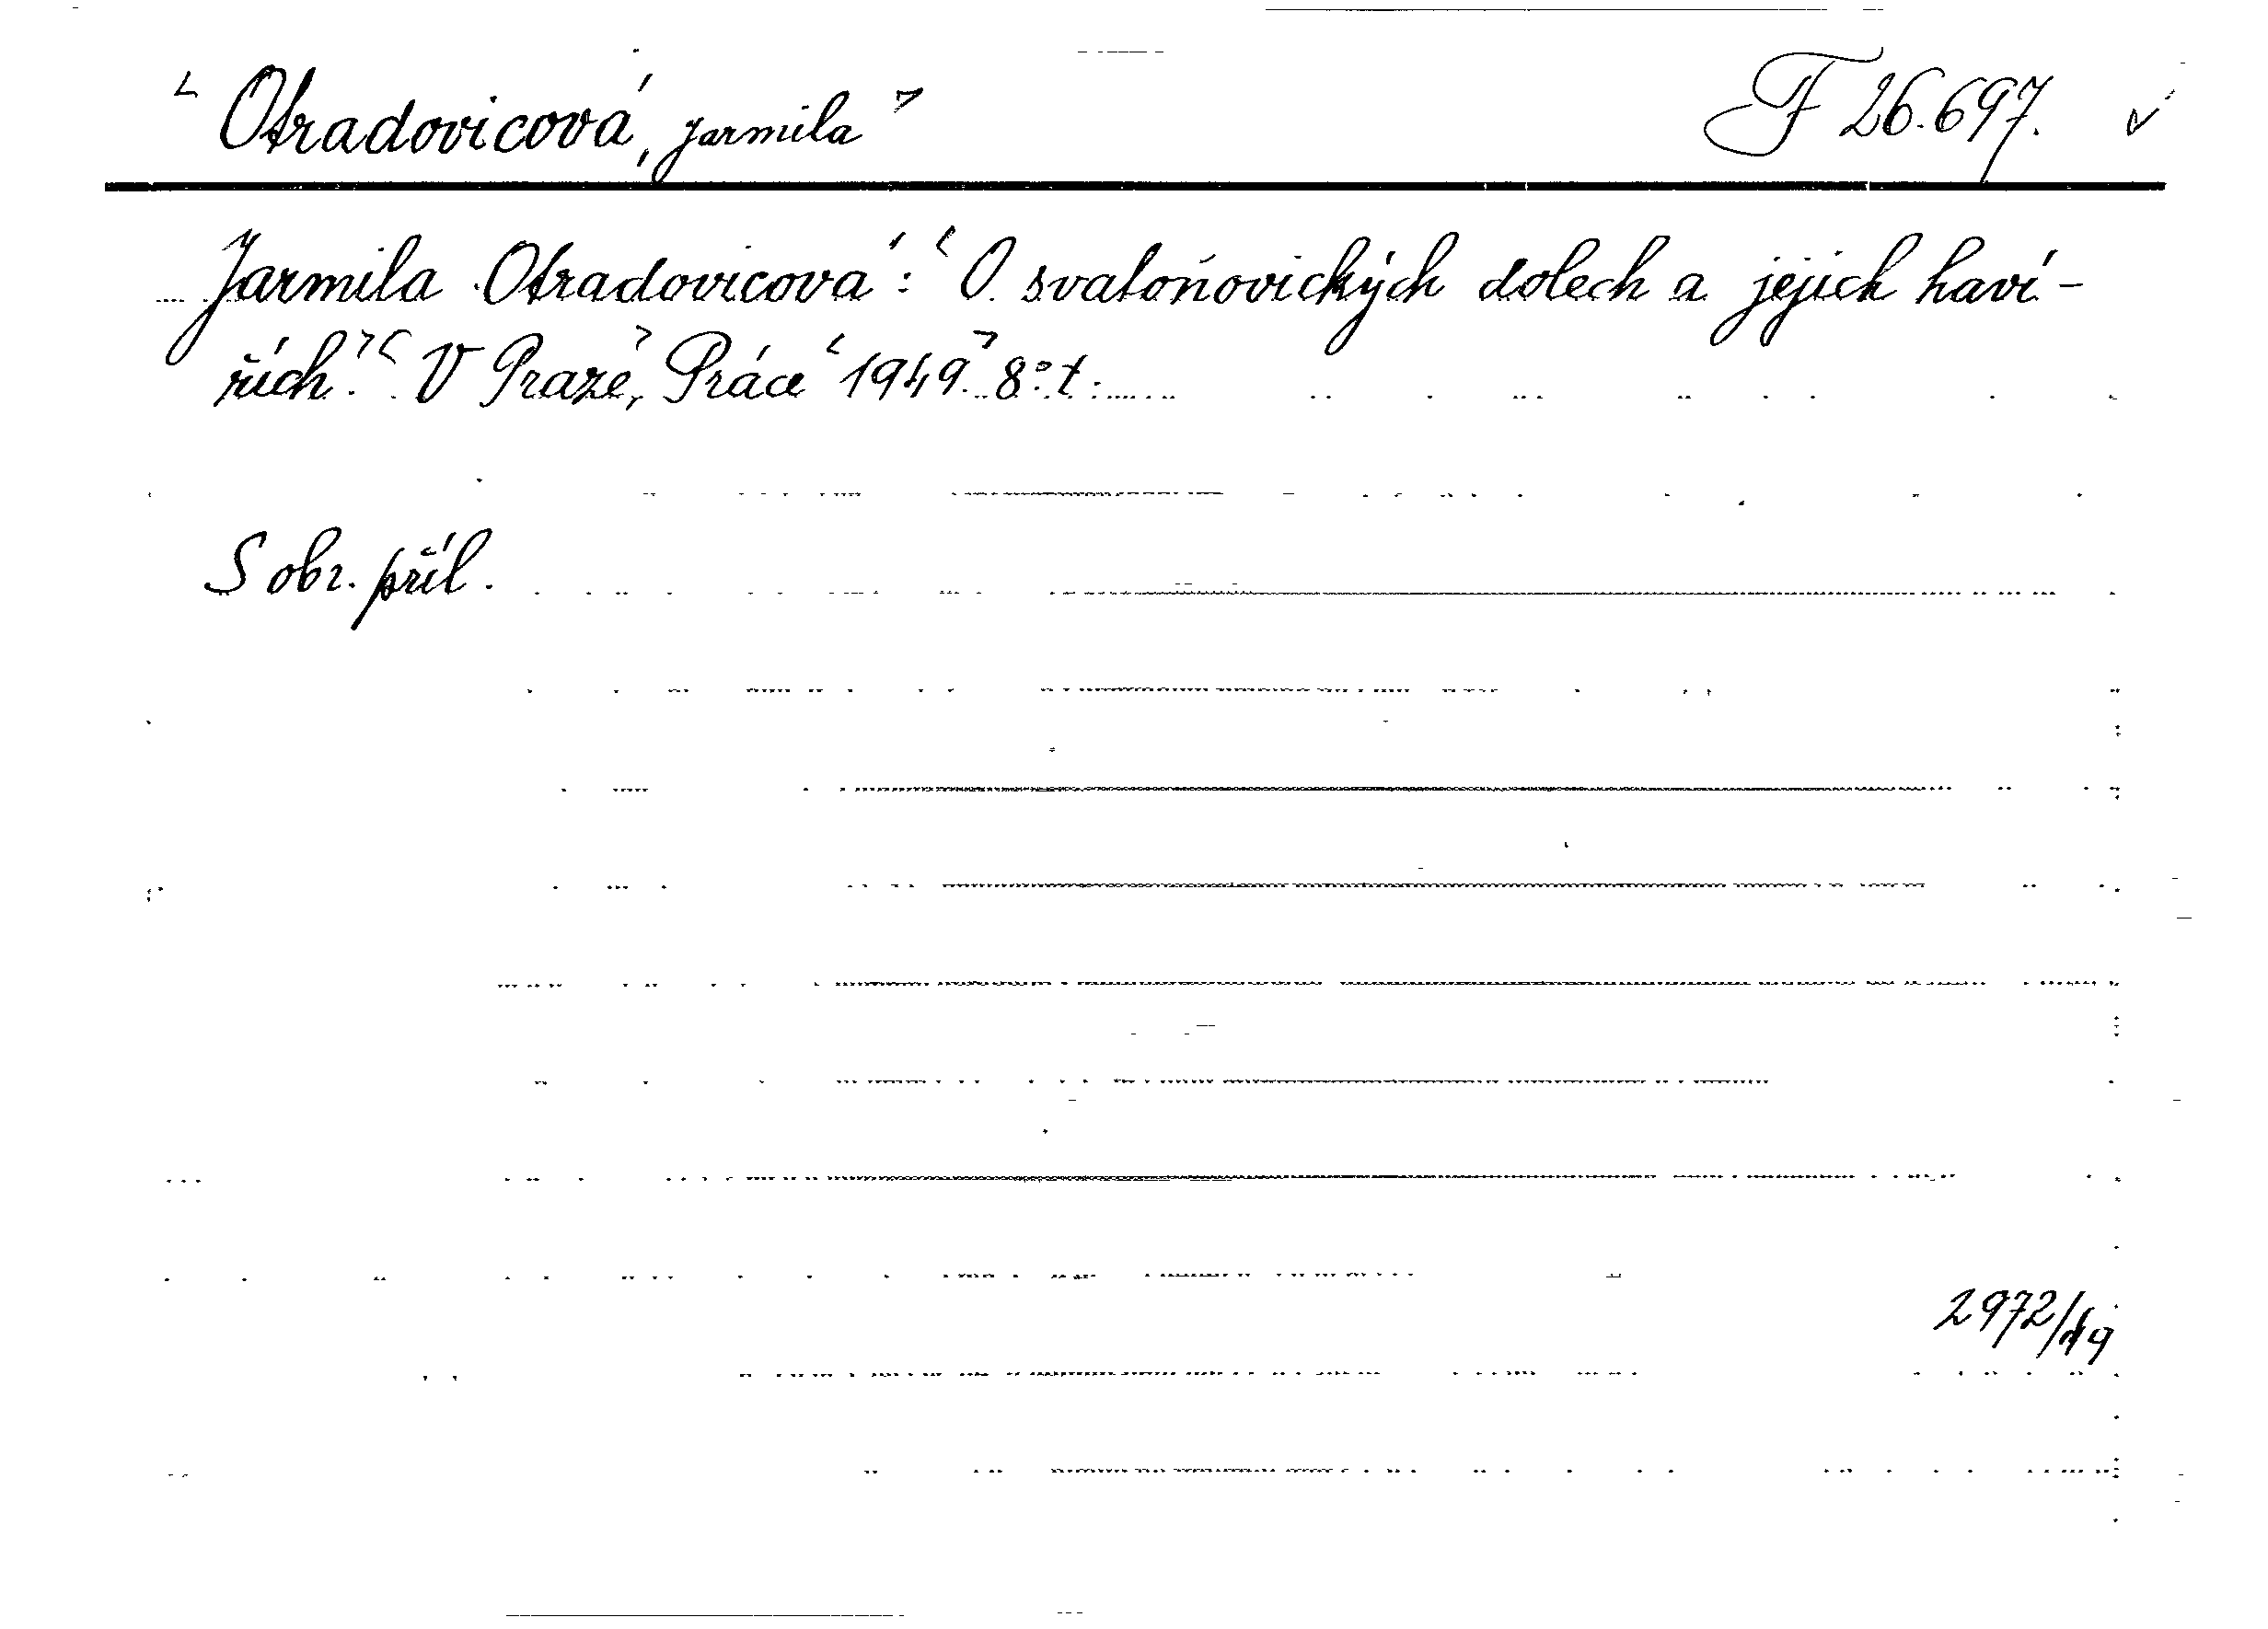 < Otradovicová, Jarmila > F 26.697. ✓
Jarmila Otradovicová: < O svatoňovických dolech a jejich haví-
řích. > < V Praze, > Práce < 1949. > 8° t.
S obr. příl.
2972/49